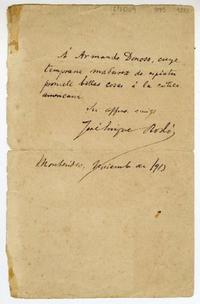 A Armando Donoso, cuya
temprana madurez de espíritu
promete bellas cosas á la crítica
americana.
Su affmo. amigo
José Enrique Rodó
Montevideo, Noviembre de 1913